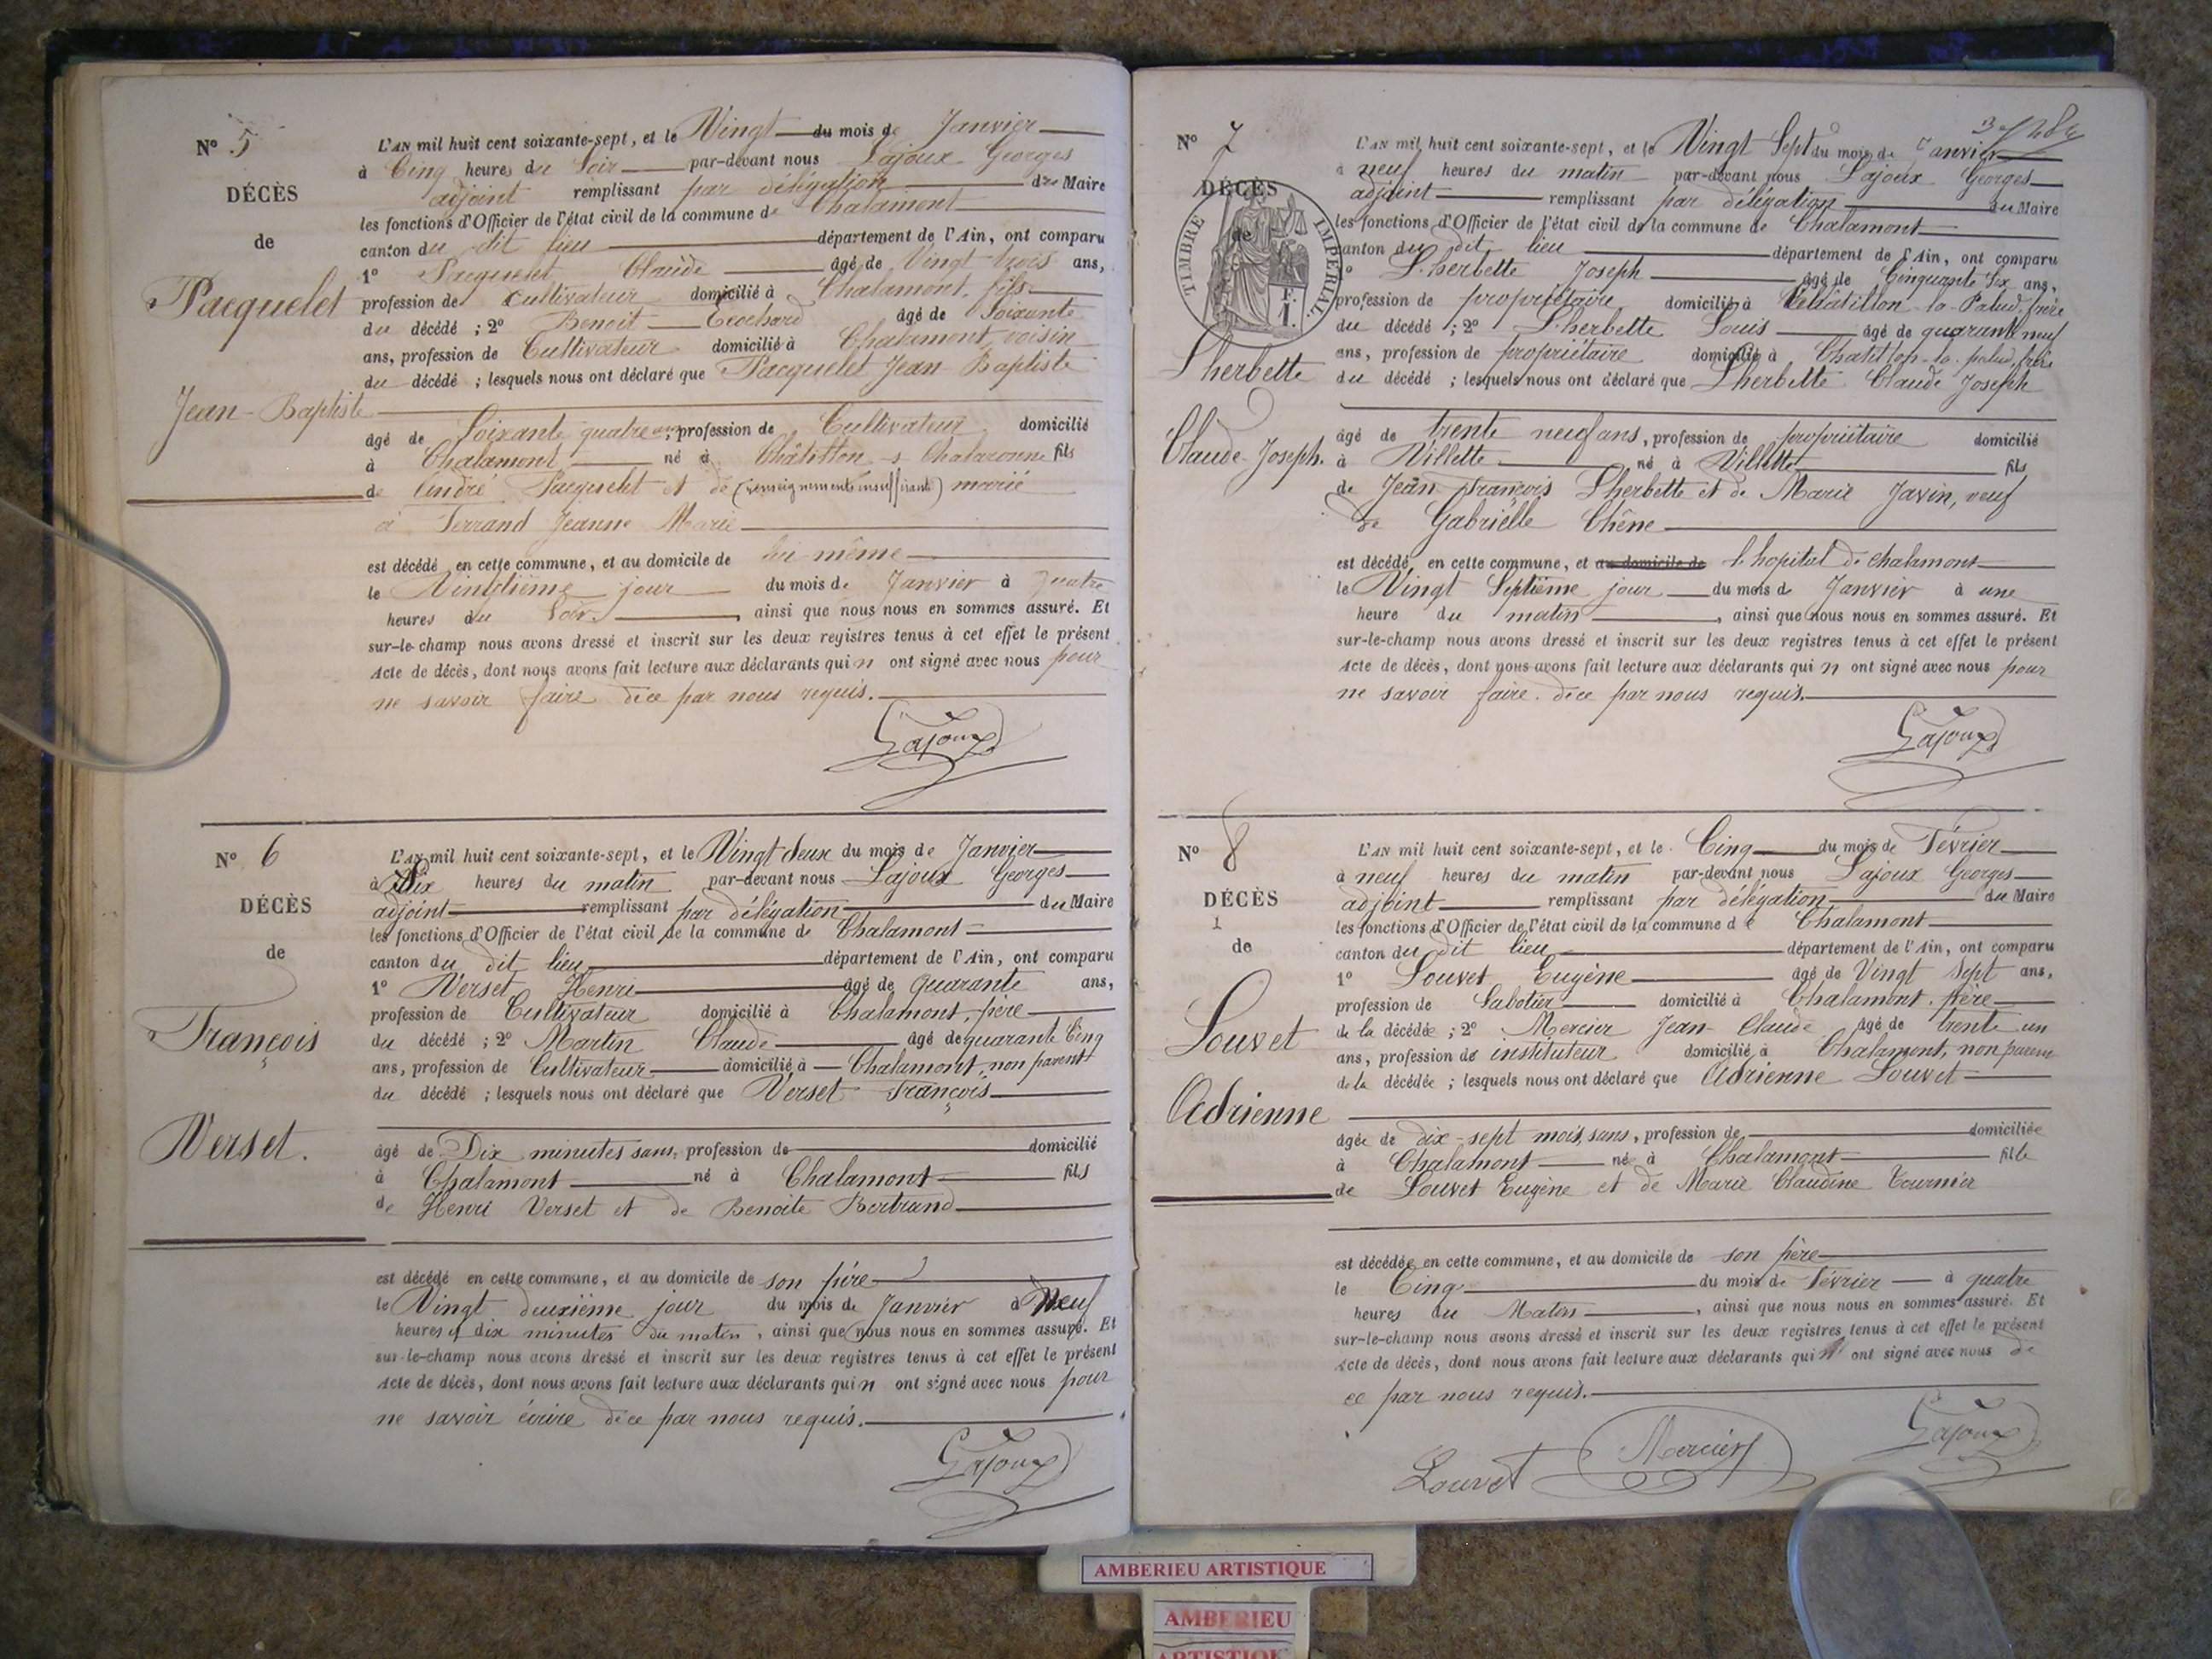 N° 5
DÉCÈS
de
Pacquelet
Jean-Baptiste
L'AN mil huit cent soixante-sept, et le Vingt du mois de Janvier
à Cinq heures du Soir par-devant nous Lajoux Georges
adjoint remplissant par délégation du Maire
les fonctions d'Officier de l'état civil de la commune de Chalamont
canton du dit lieu département de l'Ain, ont comparu
1° Pacquelet Claude âgé de Vingt-trois ans,
profession de Cultivateur domicilié à Chalamont, fils
du décédé ; 2° Benoit Ecochard âgé de Soixante
ans, profession de Cultivateur domicilié à Chalamont, voisin
du décédé ; lesquels nous ont déclaré que Pacquelet Jean Baptiste
âgé de Soixante quatre ans, profession de Cultivateur domicilié
à Chalamont né à Châtillon s Chalaronne fils
de André Pacquelet et de (renseignements insuffisants) marié
à Ferrand Jeanne Marie
est décédé en cette commune, et au domicile de lui-même
le Vingtième jour du mois de Janvier à quatre
heures du Soir, ainsi que nous nous en sommes assuré. Et
sur-le-champ nous avons dressé et inscrit sur les deux registres tenus à cet effet le présent
Acte de décès, dont nous avons fait lecture aux déclarants qui n ont signé avec nous pour
ne savoir faire de ce par nous requis.
Lajoux
N° 6
DÉCÈS
de
François
Verset.
L'AN mil huit cent soixante-sept, et le Vingt deux du mois de Janvier
à Dix heures du matin par-devant nous Lajoux Georges
adjoint remplissant par délégation du Maire
les fonctions d'Officier de l'état civil de la commune de Chalamont
canton du dit lieu département de l'Ain, ont comparu
1° Verset Henri âgé de quarante ans,
profession de Cultivateur domicilié à Chalamont, père
du décédé ; 2° Martin Claude âgé de quarante Cinq
ans, profession de Cultivateur domicilié à Chalamont, non parent
du décédé ; lesquels nous ont déclaré que Verset François
âgé de Dix minutes sans, profession de domicilié
à Chalamont né à Chalamont fils
de Henri Verset et de Benoite Bertrand
est décédé en cette commune, et au domicile de son père
le Vingt deuxième jour du mois de Janvier à Neuf
heures et dix minutes du matin, ainsi que nous nous en sommes assuré. Et
sur-le-champ nous avons dressé et inscrit sur les deux registres tenus à cet effet le présent
Acte de décès, dont nous avons fait lecture aux déclarants qui n ont signé avec nous pour
ne savoir écrire de ce par nous requis.
Lajoux
N° 7
DÉCÈS
de
TIMBRE IMPÉRIAL
Lherbette
Claude-Joseph.
L'AN mil huit cent soixante-sept, et le Vingt Sept du mois de Janvier
à neuf heures du matin par-devant nous Lajoux Georges
adjoint remplissant par délégation du Maire
les fonctions d'Officier de l'état civil de la commune de Chalamont
canton du dit lieu département de l'Ain, ont comparu
1° Lherbette Joseph âgé de Cinquante Six ans,
profession de propriétaire domicilié à Châtillon-la-Palud, frère
du décédé ; 2° Lherbette Louis âgé de quarante neuf
ans, profession de propriétaire domicilié à Chatillon-la-palud, frère
du décédé ; lesquels nous ont déclaré que Lherbette Claude Joseph
âgé de trente neuf ans, profession de propriétaire domicilié
à Villette né à Villette fils
de Jean François Lherbette et de Marie Javin, veuf
de Gabrielle Chêne
est décédé en cette commune, et au domicile de l'hopital de chalamont
le Vingt Septième jour du mois de Janvier à une
heure du matin, ainsi que nous nous en sommes assuré. Et
sur-le-champ nous avons dressé et inscrit sur les deux registres tenus à cet effet le présent
Acte de décès, dont nous avons fait lecture aux déclarants qui n ont signé avec nous pour
ne savoir faire de ce par nous requis.
Lajoux
N° 8
DÉCÈS
1
de
Louvet
Adrienne
L'AN mil huit cent soixante-sept, et le Cinq du mois de Février
à neuf heures du matin par-devant nous Lajoux Georges
adjoint remplissant par délégation du Maire
les fonctions d'Officier de l'état civil de la commune de Chalamont
canton du dit lieu département de l'Ain, ont comparu
1° Louvet Eugène âgé de Vingt Sept ans,
profession de Sabotier domicilié à Chalamont, père
de la décédée ; 2° Mercier Jean-Claude âgé de trente un
ans, profession de instituteur domicilié à Chalamont, non parent
de la décédée ; lesquels nous ont déclaré que Adrienne Louvet
âgée de dix-sept mois, sans, profession de domiciliée
à Chalamont né à Chalamont fille
de Louvet Eugène et de Marie Claudine Tournier
est décédée en cette commune, et au domicile de son père
le Cinq du mois de Février à quatre
heures du Matin, ainsi que nous nous en sommes assuré. Et
sur-le-champ nous avons dressé et inscrit sur les deux registres tenus à cet effet le présent
Acte de décès, dont nous avons fait lecture aux déclarants qui ont signé avec nous de
ce par nous requis.
Louvet Mercier Lajoux
AMBERIEU ARTISTIQUE
AMBERIEU
ARTISTIQUE